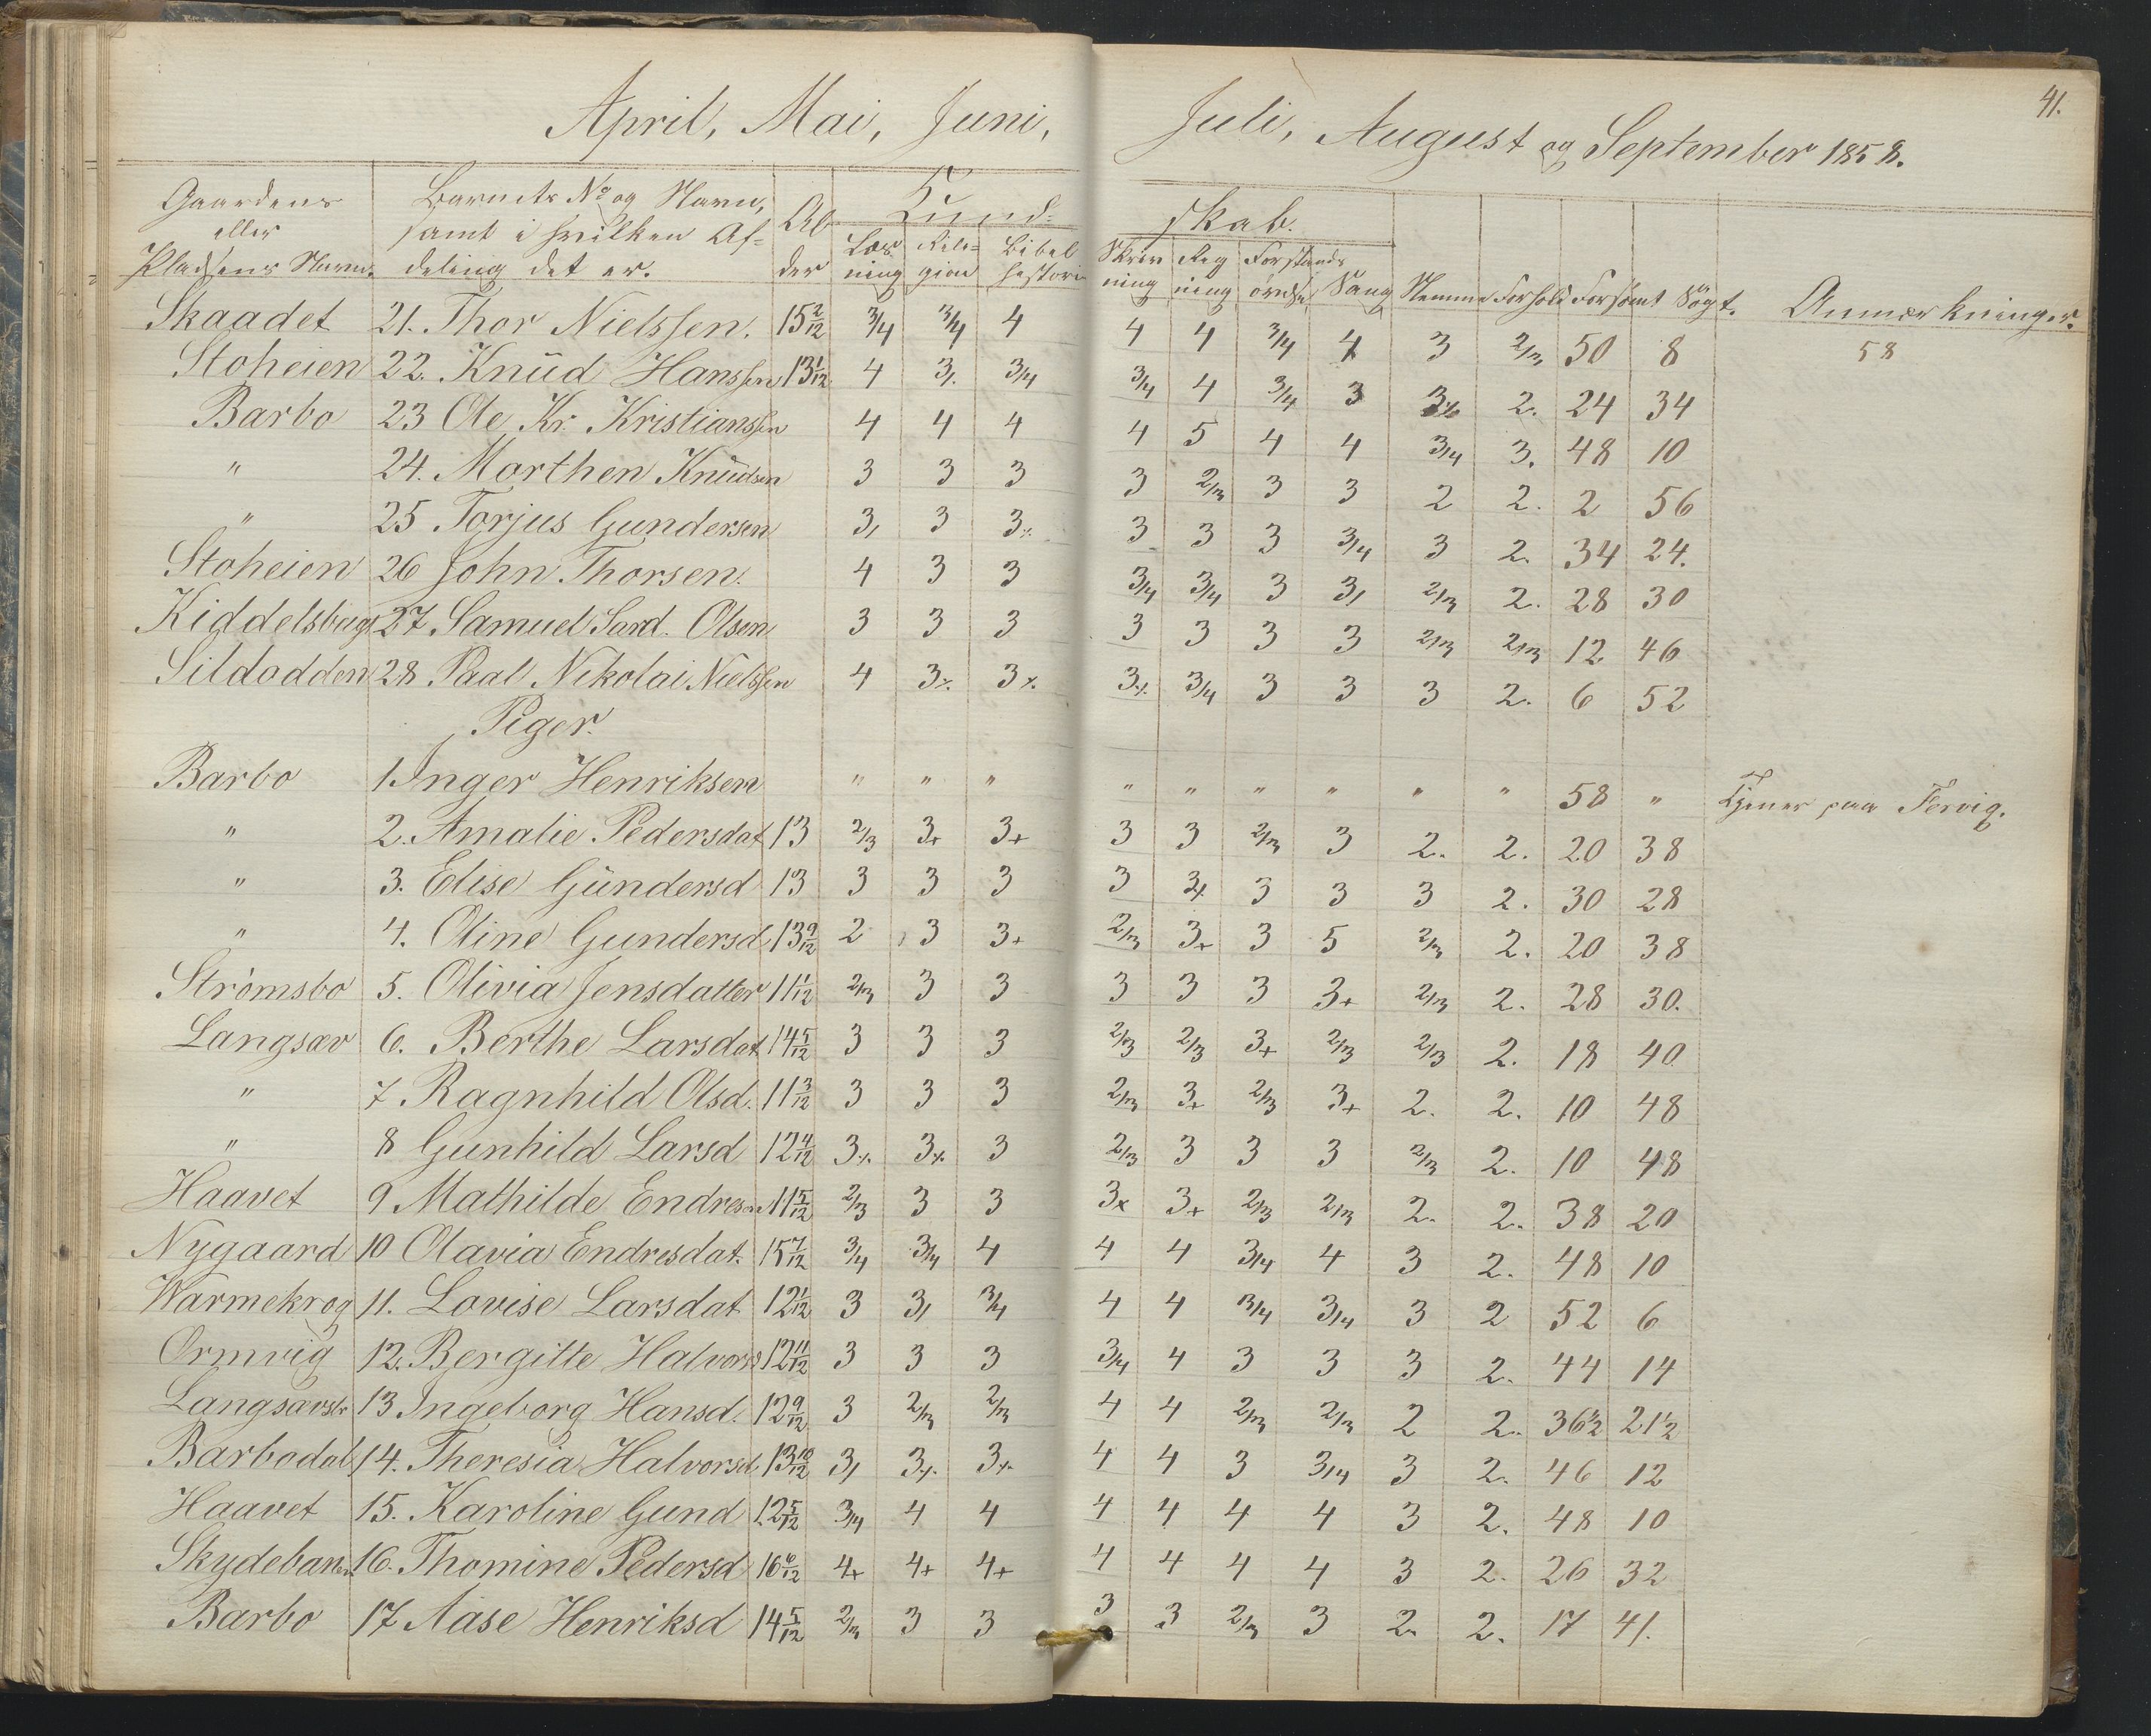 April, Mai, Juni, Juli, August og September 1858.
41.
Gaardens eller Pladsens Navn. Barnets No og Navn, samt i hvilken Afdeling det er. Alder Kundskab.
Læsning Religion Bibelhistorie Skrivning Regning Forstandsøvelse Sang Nemme Forhold Forsømt Søgt. Anmærkninger.
Skaadet 21. Thor Nielssen. 15 2/12 3/4 3/4 4 4 4 3/4 4 3 2/3 50 8 58
Stoheien 22. Knüd Hanssen 13 1/12 4 3/. 3/4 3/4 4 3/4 3 2. 24 34
Barbo 23 Ole Kr. Kristianssen 4 4 4 4 5 4 4 3/4 3. 48 10
" 24. Morthen Knüdsen 3 3 3 3 2/3 3 3 2 2. 2 56
" 25 Torjus Gundersen 3/ 3 3% 3 3 3 3/4 3 2. 34 24.
Stoheien 26 John Thorsen. 4 3 3 3/4 3/4 3 3/ 2/3 2. 28 30
27 Samuel Olsen 3 3 3 3 3 3 3 2/3 2/3 12 46
Sildodden 28 Paal Nikolai Nielssen 4 3% 3% 3% 3/4 3 3 3 2. 6 52
Piger.
Barbo 1. Inger Henriksen " " " " " " " " " 58 " Tjener paa Fervig.
" 2. Amalie Pedersdat 13 2/3 3+ 3+ 3 3 2/3 3 2. 2. 20 38
" 3. Elise Gündersd 13 3 3 3 3 3% 3 3 3 2. 30 28
" 4. Oline Gundersd 13 9/12 2 3 3+ 2/3 3+ 3 5 2/3 2. 20 38
Strömsbo 5. Olivia Jensdatter 11 1/12 2/3 3 3 3 3 3 3+ 2/3 2. 28 30.
Langsæv 6. Berthe Larsdat 14 5/12 3 3 3 2/3 2/3 3+ 2/3 2/3 2. 18 40
" 7. Ragnhild Olsd. 11 3/12 3 3 3 2/3 3+ 2/3 3+ 2. 2. 10 48
" 8 Gunhild Larsd 12 4/12 3% 3% 3 2/3 3 3 3 2/3 2. 10 48
Haavet 9 Mathilde 11 5/12 2/3 3 3 3x 3+ 2/3 2/3 2. 2. 38 20
Nygaard 10 Olavia Endresdat. 15 7/12 3/4 3/4 4 4 4 3/4 4 3 2. 48 10
Warmekrog 11. Lovise Larsdat 12 1/12 3 3/ 3/4 4 4 3/4 3/4 3 2 52 6
Ormvig 12. Bergitte Halvorsd 12 11/12 3 3 3 3/4 4 3 3 3 2. 44 14
13 Ingeborg Hansd. 12 9/12 3 2/3 2/3 4 4 2/3 2/3 2 2. 36 1/2 21 1/2
Barbodal 14. Theresia Halvorsd 13 10/12 3/ 3% 3% 4 4 3 3/4 3 2. 46 12
Haavet 15. Karoline Gund 12 5/12 3/4 4 4 4 4 4 4 3 2. 48 10
16. Thomine Pedersd 16 6/12 4+ 4+ 4+ 4 4 4 4 3 2. 26 32
Barbo 17 Aase Henriksd 14 5/12 2/3 3 3 3 3 2/3 3 2. 2. 17 41.